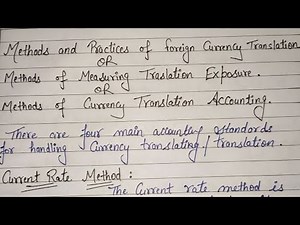 Methods and Practices of foreign Currency Translation
OR
Methods of Measuring Traslation Exposure.
OR
Methods of Currency Translation Accounting.
There are four main accounting standards
for handling Currency translating/translation.
Current Rate Method:
The Current rate method is